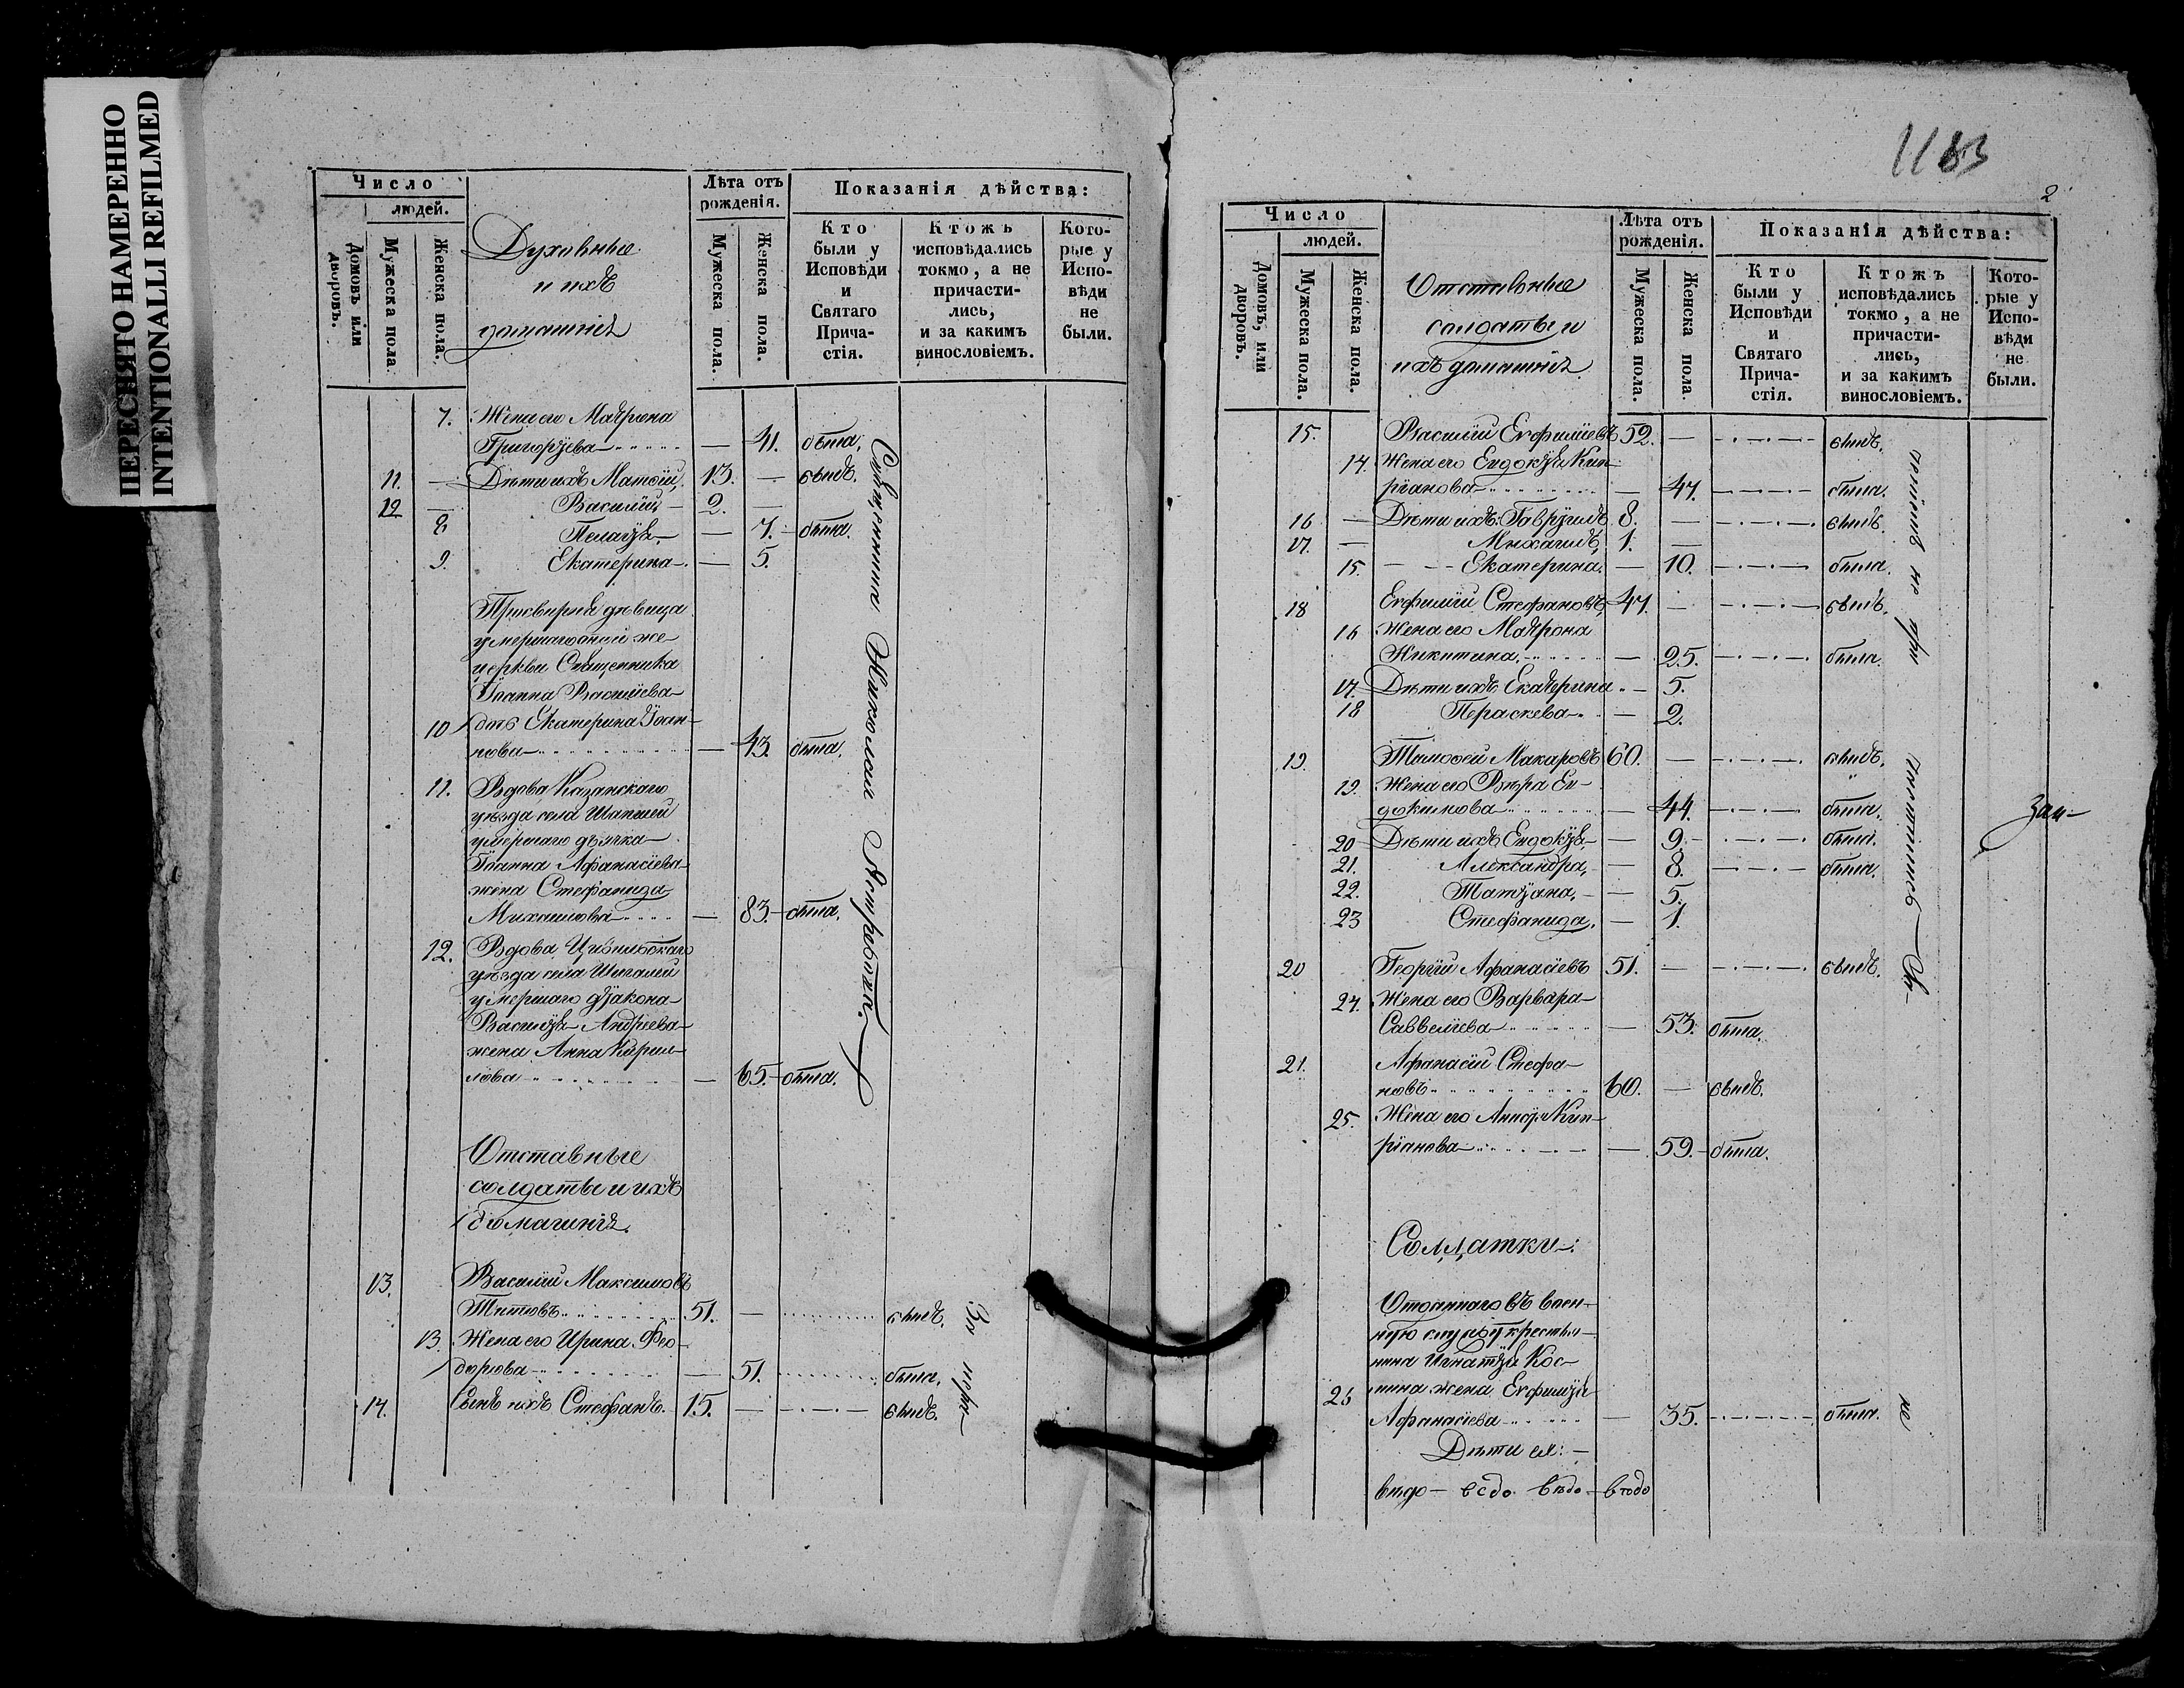 ПЕРЕСНЯТО НАМЕРЕННО
INTENTIONALLI REFILMED
Число
людей.
Домовъ или дворовъ.
Мужеска пола.
Женска пола.
Духовные
и ихъ
домашніе
Лѣта отъ
рожденія.
Мужеска пола.
Женска пола.
Показанія дѣйства:
Кто
были у
Исповѣди
и
Святаго
Прича-
стія.
Ктожъ
исповѣдались
токмо, а не
причасти-
лись,
и за какимъ
винословіемъ.
Кото-
рые у
Испо-
вѣди
не
были.
7. Жена его Матрона
Григорьева — 41. была.
11. — Дѣти ихъ Матѳій, 13. — былъ.
12 — Василій, — 2. —
8 Пелагія, — 7. — была.
9. Екатерина — 5.
девица
умершаго той же
церкви Священника
Іоанна Васильева
10 дочь Екатерина Іоан-
нова — 43. была.
11. Вдова Казанскаго
уѣзда села
умершаго дьячка
Іоанна Афанасіева
жена Стефанида
Михаилова — 83. — была.
12. Вдова Цивильскаго
уѣзда села Шигалей
умершаго діакона
Василія Андреева
жена Анна Кирил-
лова — 65. — была.
Священникъ Николай
Отставные
солдаты и ихъ
домашнія.
13. Василій Максимовъ
Титовъ 51. — былъ.
13. Жена его Ирина Фео-
дорова — 51. была.
14. Сынъ ихъ Стефанъ. 15. — былъ.
За
1183
2
Число
людей.
Домовъ, или дворовъ.
Мужеска пола.
Женска пола.
Отставные
солдаты и
ихъ домашніе.
Лѣта отъ
рожденія.
Мужеска пола.
Женска пола
Показанія дѣйства:
Кто
были у
Исповѣди
и
Святаго
Прича-
стія.
Ктожъ
исповѣдались
токмо, а не
причасти-
лись,
и за какимъ
винословіемъ.
Кото-
рые у
Испо-
вѣди
не
были.
15. Василій Евфиміевъ 52. — былъ.
14 Жена его Евдокія Кип-
ріанова — 47. была.
16 — Дѣти ихъ: Гавріилъ 8. — былъ.
17. — Михаилъ, 1. —
15. Екатерина. — 10. была.
18 Евфимій Стефановъ, 47. — былъ.
16 Жена его Матрона
Никитина. — 25. была.
17. Дѣти ихъ Екатерина — 5.
18 Параскева — 2.
19. Тимоѳей Макаровъ 60. — былъ.
19. Жена его Вѣра Ев-
докимова — 44. была.
20 Дѣти ихъ Евдокія — 9. была.
21. Александра, — 8. была.
22. Татіана, — 5.
23 Стефанида. — 1.
20 Георгій Афанасіевъ 51. — былъ.
24. Жена его Варвара
Савельева — 53. была.
21. Афанасій Стефа-
новъ 60. — былъ.
25. Жена его Анна Кип-
ріанова — 59. — была.
Солдатки:
Отданнаго въ воен-
ную службу крестья-
нина Игнатія Кос-
мина жена Евфимія
26 Афанасіева — 35. была.
Дѣти ея: —
не